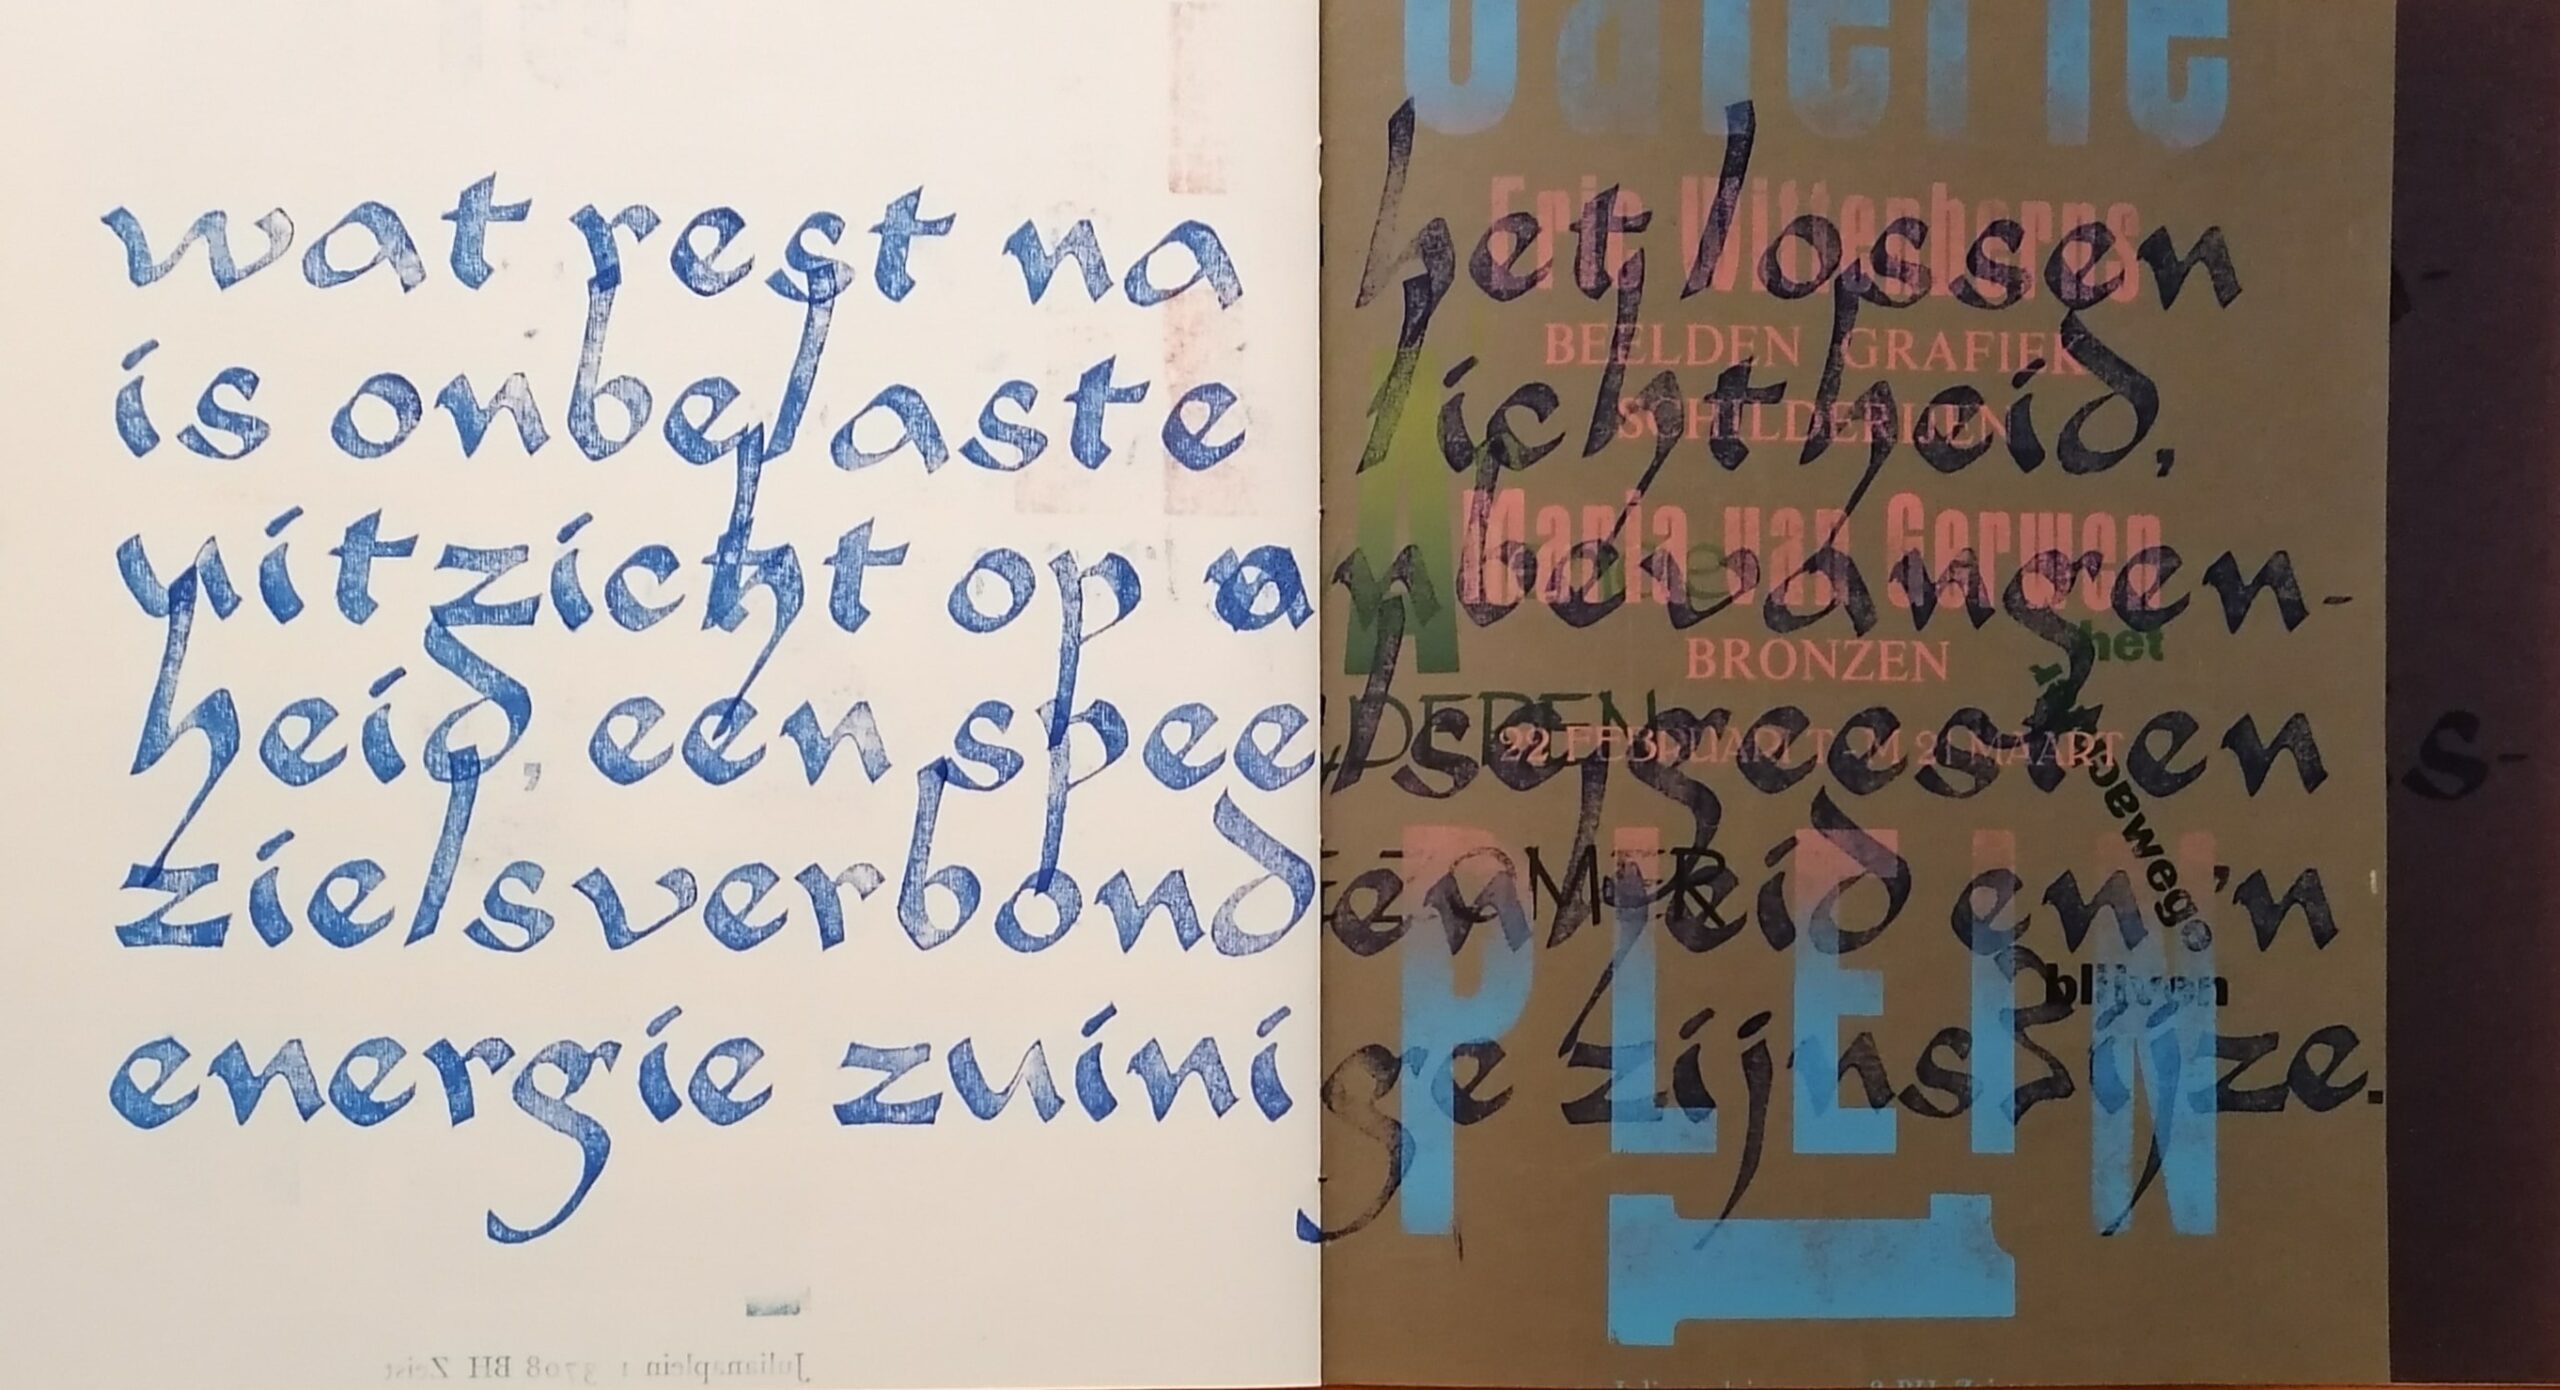 wat rest na het lossen
is onbelaste lichtheid,
uitzicht op onbevangen-
heid, een speelse geest en
zielsverbondenheid en 'n
energie zuinige zijnswijze.
Galerie
Eric
BEELDEN GRAFIEK
SCHILDERIJEN
Maria van Gerwen
BRONZEN
22 FEBRUARI T-M 21 MAART
PLEIN
1
A
het
blijven
s-
Julianaplein 1 3708 BH Zeist